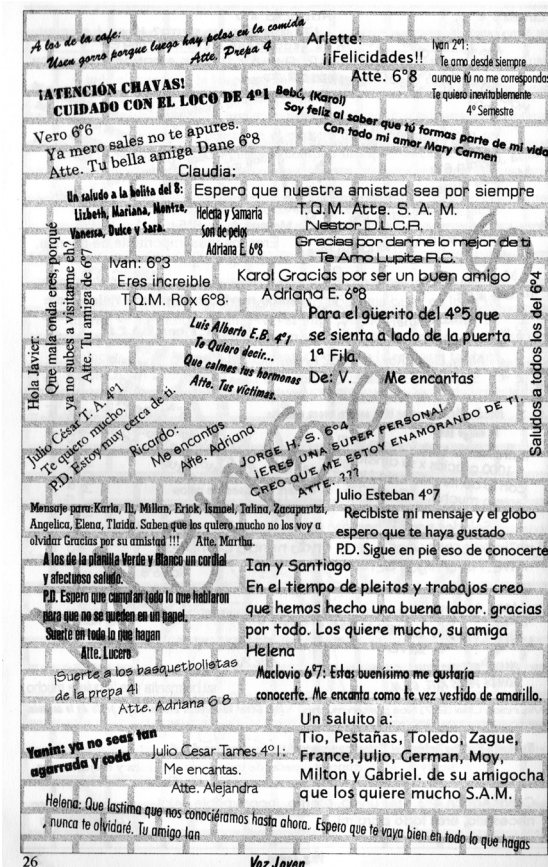 A los de la cafe:
Usen gorro porque luego hay pelos en la comida
Atte. Prepa 4
Arlette:
¡¡Felicidades!!
Atte. 6°8
Ivan 2°1:
Te amo desde siempre
aunque tú no me correspondas
Te quiero inevitablemente
4° Semestre
¡ATENCIÓN CHAVAS!
CUIDADO CON EL LOCO DE 4°1
Bebú, (Karol)
Soy feliz al saber que tú formas parte de mi vida
Con todo mi amor Mary Carmen
Vero 6°6
Ya mero sales no te apures.
Atte. Tu bella amiga Dane 6°8
Claudia:
Espero que nuestra amistad sea por siempre
T.Q.M. Atte. S. A. M.
Un saludo a la bolita del 8:
Lizbeth, Mariana, Montze,
Vanessa, Dulce y Sara.
Helena y Samaria
Son de pelos
Adriana E. 6°8
Nestor D.L.C.R.
Gracias por darme lo mejor de ti
Te Amo Lupita R.C.
Hola Javier:
Que mala onda eres, porqué
ya no subes a visitarme eh?
Atte. Tu amiga de 6°7
Ivan: 6°3
Eres increible
T.Q.M. Rox 6°8.
Karol Gracias por ser un buen amigo
Adriana E. 6°8
Luis Alberto E.B. 4°1
Te Quiero decir...
Que calmes tus hormonas
Atte. Tus víctimas.
Para el güerito del 4°5 que
se sienta a lado de la puerta
1ª Fila.
De: V. Me encantas
Saludos a todos los del 6°4
Julio César T. A. 4°1
Te quiero mucho.
P.D. Estoy muy cerca de ti.
Ricardo:
Me encantas
Atte. Adriana
JORGE H. S. 6°4
¡ERES UNA SUPER PERSONA!
CREO QUE ME ESTOY ENAMORANDO DE TI.
ATTE. ???
Mensaje para:Karla, Ili, Millan, Erick, Ismael, Talina, Zacapantzi,
Angelica, Elena, Tlaida. Saben que los quiero mucho no los voy a
olvidar Gracias por su amistad !!! Atte, Martha.
Julio Esteban 4°7
Recibiste mi mensaje y el globo
espero que te haya gustado
P.D. Sigue en pie eso de conocerte
A los de la planilla Verde y Blanco un cordial
y afectuoso saludo.
P.D. Espero que cumplan todo lo que hablaron
para que no se queden en un papel.
Suerte en todo lo que hagan
Atte. Lucero
Ian y Santiago
En el tiempo de pleitos y trabajos creo
que hemos hecho una buena labor. gracias
por todo. Los quiere mucho, su amiga
Helena
¡Suerte a los basquetbolistas
de la prepa 4!
Atte. Adriana 6 8
Maclovio 6°7: Estas buenísimo me gustaría
conocerte. Me encanta como te vez vestido de amarillo.
Yanin: ya no seas tan
agarrada y coda
Julio Cesar Tames 4°1:
Me encantas.
Atte. Alejandra
Un saluito a:
Tio, Pestañas, Toledo, Zague,
France, Julio, German, Moy,
Milton y Gabriel. de su amigocha
que los quiere mucho S.A.M.
Helena: Que lastima que nos conociéramos hasta ahora. Espero que te vaya bien en todo lo que hagas
, nunca te olvidaré. Tu amigo Ian
26
Voz Joven
Mensajes